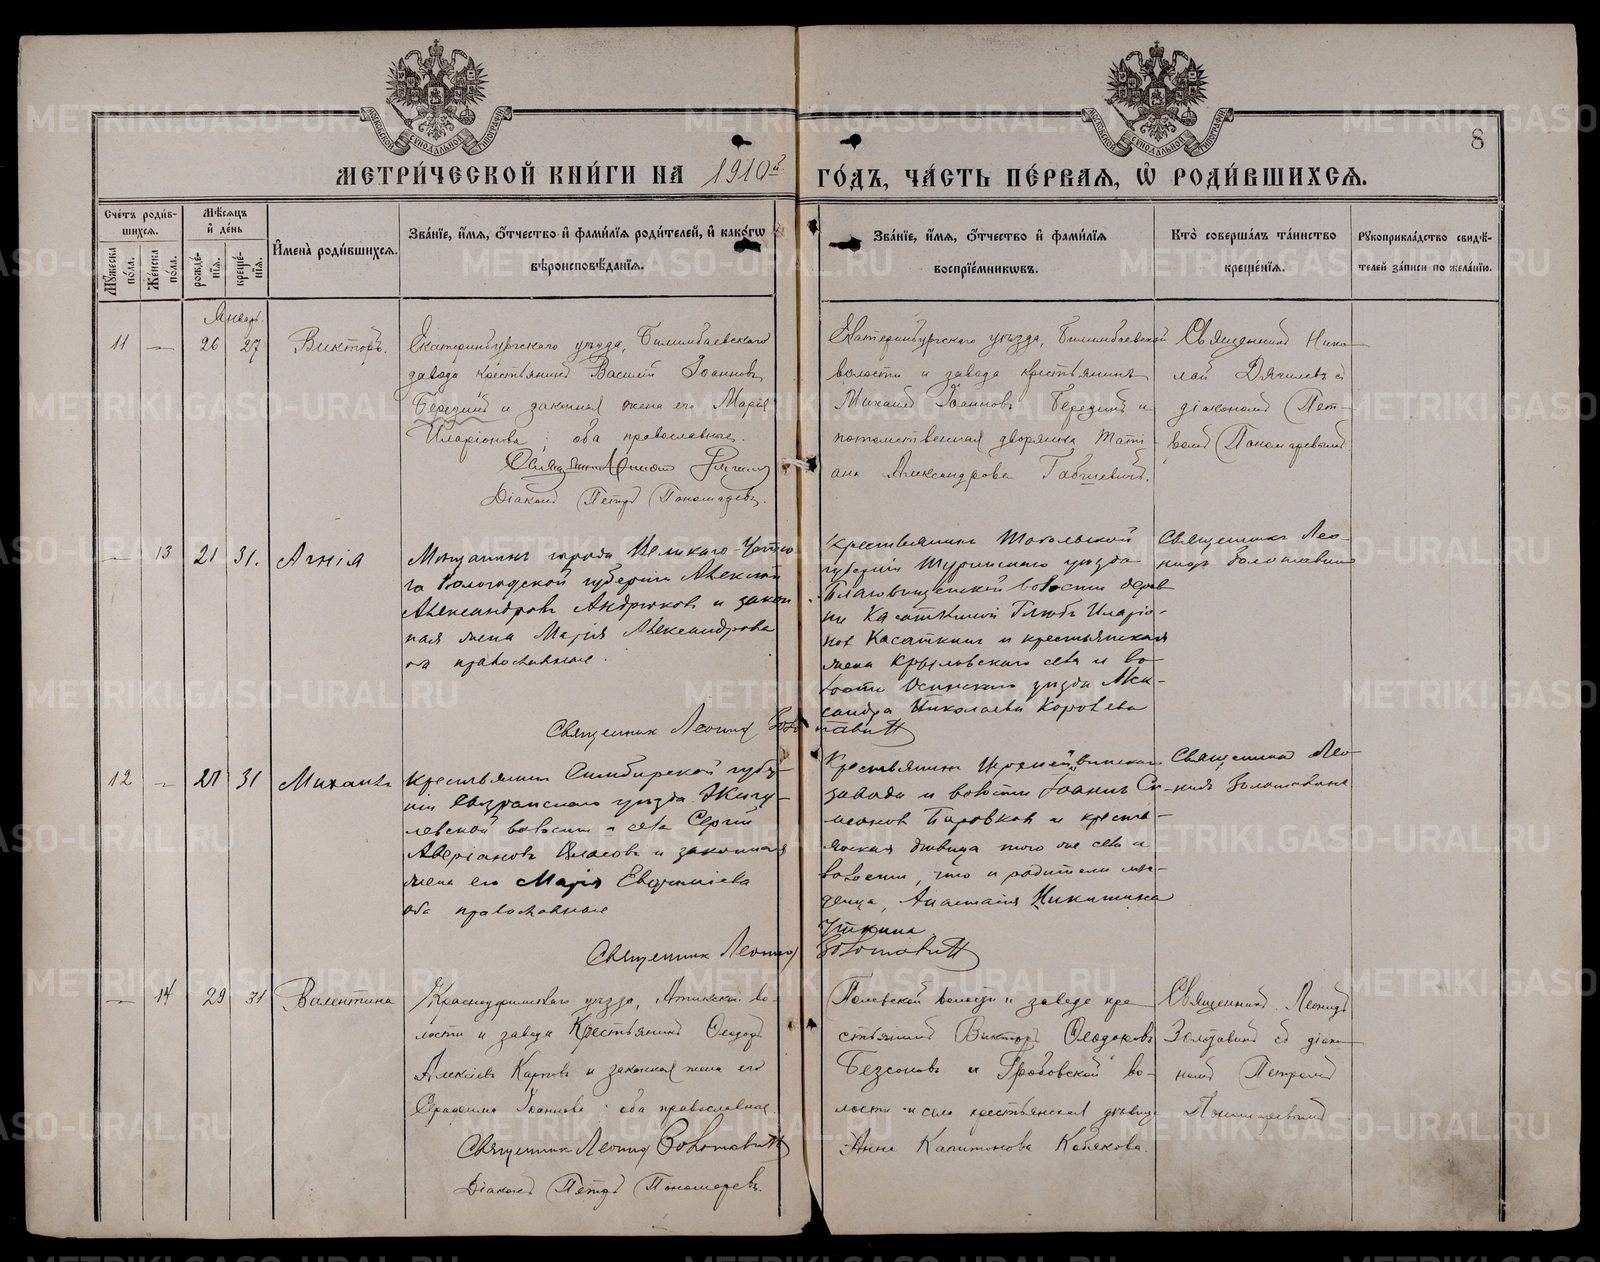 8
МЕТРИ́ЧЕСКОЙ КНИ́ГИ НА 1910й ГО́ДЪ, ЧА́СТЬ ПЕ́РВАѦ, Ѡ҆ РОДИ́ВШИХСѦ.
Сче́тъ роди́вшихсѧ.
Мꙋ́жеска по́ла.
Же́нска по́ла.
Мѣ́сѧцъ и҆ де́нь
рожде́нїѧ.
креще́нїѧ.
И҆мена̀ роди́вшихсѧ.
Зва́нїе, и҆́мѧ, ѻ҆́тчество и҆ фами́лїѧ роди́телей, и҆ како́гѡ
вѣроисповѣ́данїѧ.
Зва́нїе, и҆́мѧ, ѻ҆́тчество и҆ фами́лїѧ
воспрїе́мникѡвъ.
Кто̀ соверша́лъ та́инство
креще́нїѧ.
Рꙋкоприкла́дство свидѣ́-
телей за́писи по жела́нїю.
Январь.
11 — 26 27 Викторъ.
Екатеринбургского уѣзда, Билимбаевского
завода крестьянинъ Василій Іоанновъ
Березинъ и законная жена его Марія
Иларіонова; оба православные.
Діаконъ Петръ Пономаревъ.
Екатеринбургского уѣзда, Билимбаевской
волости и завода крестьянинъ
Михаилъ Іоанновъ Березинъ и
потомственная дворянка Тати-
ана Александрова
Священникъ Нико-
лай съ
діакономъ Пет-
ромъ Пономаревымъ
— 13 21 31. Агнія
Мѣщанинъ города Великаго-Устю-
га Вологодской губерніи Алексѣй
Александровъ Андрюковъ и закон
ная жена Марія Александрова
оба православные.
Священникъ Леонидъ Золотавинъ
крестьянинъ Тобольской
губерніи Туринскаго уѣзда
Благовѣщенской волости дерев
ни Касаткиной Глѣбъ Иларіо-
нов Касаткинъ и крестьянская
жена Крыловскаго села и во-
лости Осинскаго уѣзда Алек-
сандра Николаева Коровева
Священникъ Лео-
нидъ Золотавинъ
12 — 27 31 Михаилъ
крестьянинъ Симбирской губер-
ніи Сызранскаго уѣзда Жигу-
левской волости и села Сергій
Аверіановъ Власовъ и законная
жена его Марія Евфиміева
оба православные
Священникъ Леонидъ Золотавинъ
Крестьянинъ
завода и волости Іоаннъ Си-
меонов Боровков и кресть-
янская дѣвица того же села и
волости, что и родители мла-
денца, Анастасія Никитина
Уткина
Священникъ Лео-
нидъ Золотавинъ
— 14 29 31 Валентина
Красноуфимскаго уѣзда, Артинской во-
лости и завода Крестьянинъ Ѳеодоръ
Алексѣевъ Карповъ и законная жена его
Серафима Іоаннова; оба православные.
Священник Леонид Золотавинъ
Діаконъ Петръ Пономаревъ.
Полевской волости и завода кре
стьянинъ Викторъ Ѳеодоровъ
Безсоновъ и Гробовской во-
лости и села крестьянская дѣвица
Анна Капитонова Кобякова.
Священникъ Леонидъ
Золотавинъ съ діако-
номъ Петромъ
Пономаревымъ
METRIKI.GASO-URAL.RU